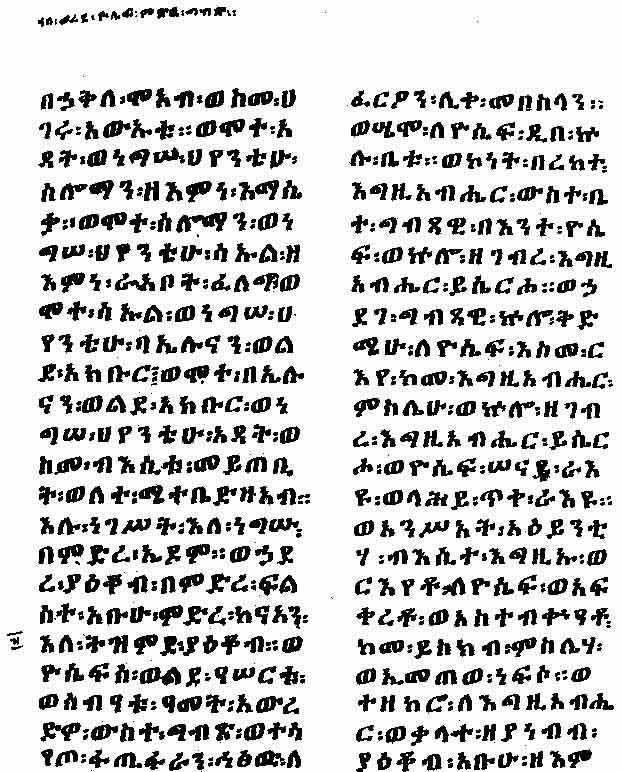 ወረደ፡ዮሴፍ፡ምድረ፡ግብጽ።
በኃቅለ፡ሞአብ፡ወከመ፡ሀ
ገሩ፡አውኡቱ።ወሞተ፡አ
ዳት፡ወነግሠ፡ህየንቴሁ፡
ሰሎማን፡ዘእምነ፡አማሴ
ቃ።ወሞተ፡ሰሎማን፡ወነ
ግሠ፡ህየንቴሁ፡ሳኡል፡ዘ
እምነ፡ራአቦት፡ፈለግ፡ወ
ሞተ፡ሳኡል፡ወነግሠ፡ህ
የንቴሁ፡ባኤሉናን፡ወል
ደ፡አክቡር፤ወሞተ፡በኤሉ
ናን፡ወልደ፡አክቡር፡ወነ
ግሠ፡ህየንቴሁ፡አዳት፡ወ
ከመ፡ብእሲቱ፡መይጠቢ
ት፡ወለተ፡ሜተቤድዘአብ።
እሉ፡ነገሥት፡እለ፡ነግሡ፡
በምድረ፡ኤዶም።ወኃደ
ረ፡ያዕቆብ፡በምድረ፡ፍል
ሰተ፡አቡሁ፡ምድረ፡ከናአን፡
እለ፡ትዝምደ፡ያዕቆብ።ወ
ዮሴፍሰ፡ወልደ፡ዓሠርቱ፡
ወሰብዓቱ፡ዓመት፡አውረ
ድዎ፡ውስተ፡ግብጽ፡ወተሳ
የጦ፡ፋጢፋራን፡ኅፅወ፡ለ
ፈርዖን፡ሊቀ፡መበስላን።
ወሤሞ፡ለዮሴፍ፡ዲበ፡ኵ
ሉ፡ቤቱ።ወኮነት፡በረከተ፡
እግዚአብሔር፡ውስተ፡ቤ
ተ፡ግብጻዊ፡በእንተ፡ዮሴ
ፍ፡ወኵሎ፡ዘገብረ፡እግዚ
አብሔር፡ይሴርሖ።ወኃ
ደገ፡ግብጻዊ፡ኵሎ፡ቅድ
ሜሁ፡ለዮሴፍ፡እስመ፡ር
እየ፡ከመ፡እግዚአብሔር፡
ምስሌሁ፡ወኵሎ፡ዘገብ
ረ፡እግዚአብሔር፡ይሴር
ሖ፡ወዮሴፍ፡ሠናይ፡ራእ
ዩ፡ወላሕይ፡ጥቀ፡ራእዩ።
ወአንሥአት፡አዕይንቲ
ሃ፡ብእሲተ፡እግዚኡ፡ወ
ርእየቶ፡ለዮሴፍ፡ወአፍ
ቀረቶ፡ወአስተብቍዓቶ፡
ከመ፡ይስክብ፡ምስሌሃ፡
ወኢመጠወ፡ነፍሶ።ወ
ተዘከሮ፡ለእግዚአብሔ
ር፡ወቃላተ፡ዘያነብብ፡
ያዕቆብ፡አቡሁ፡ዘእም